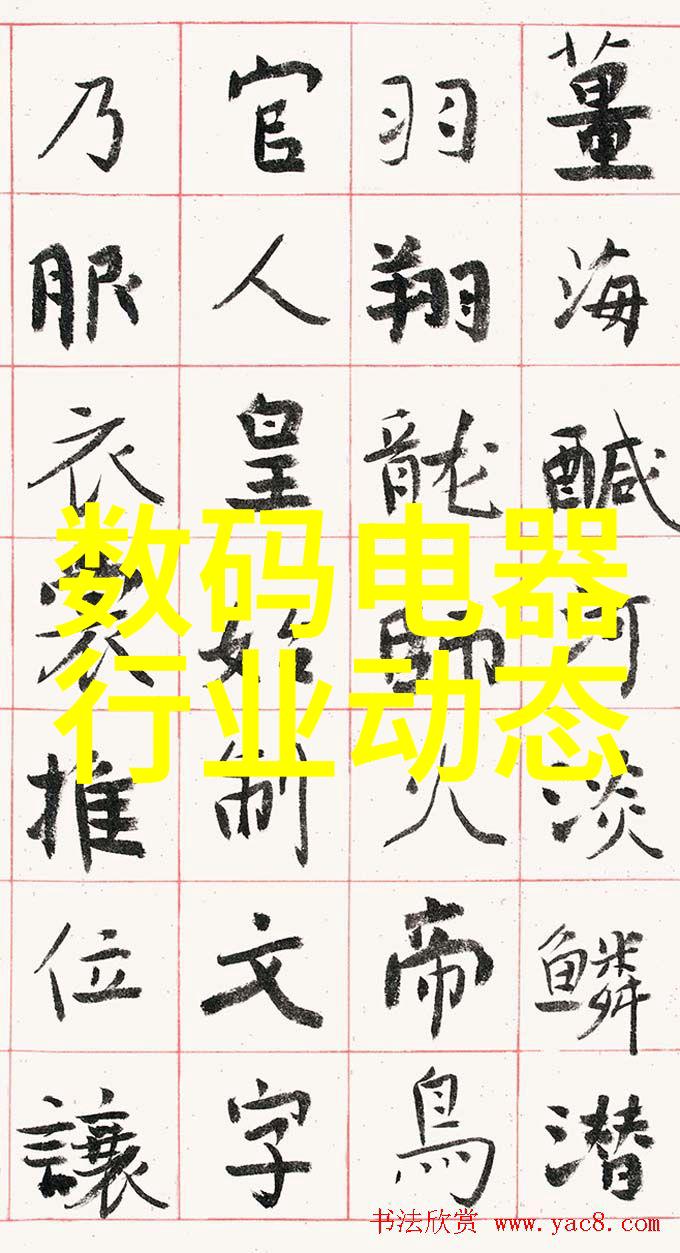 薑海醎河淡鱗潜
羽翔龍師火帝鳥
官人皇始制文字
乃服衣裳推位讓
数码电器
行业动态
书法欣赏 www.yac8.com